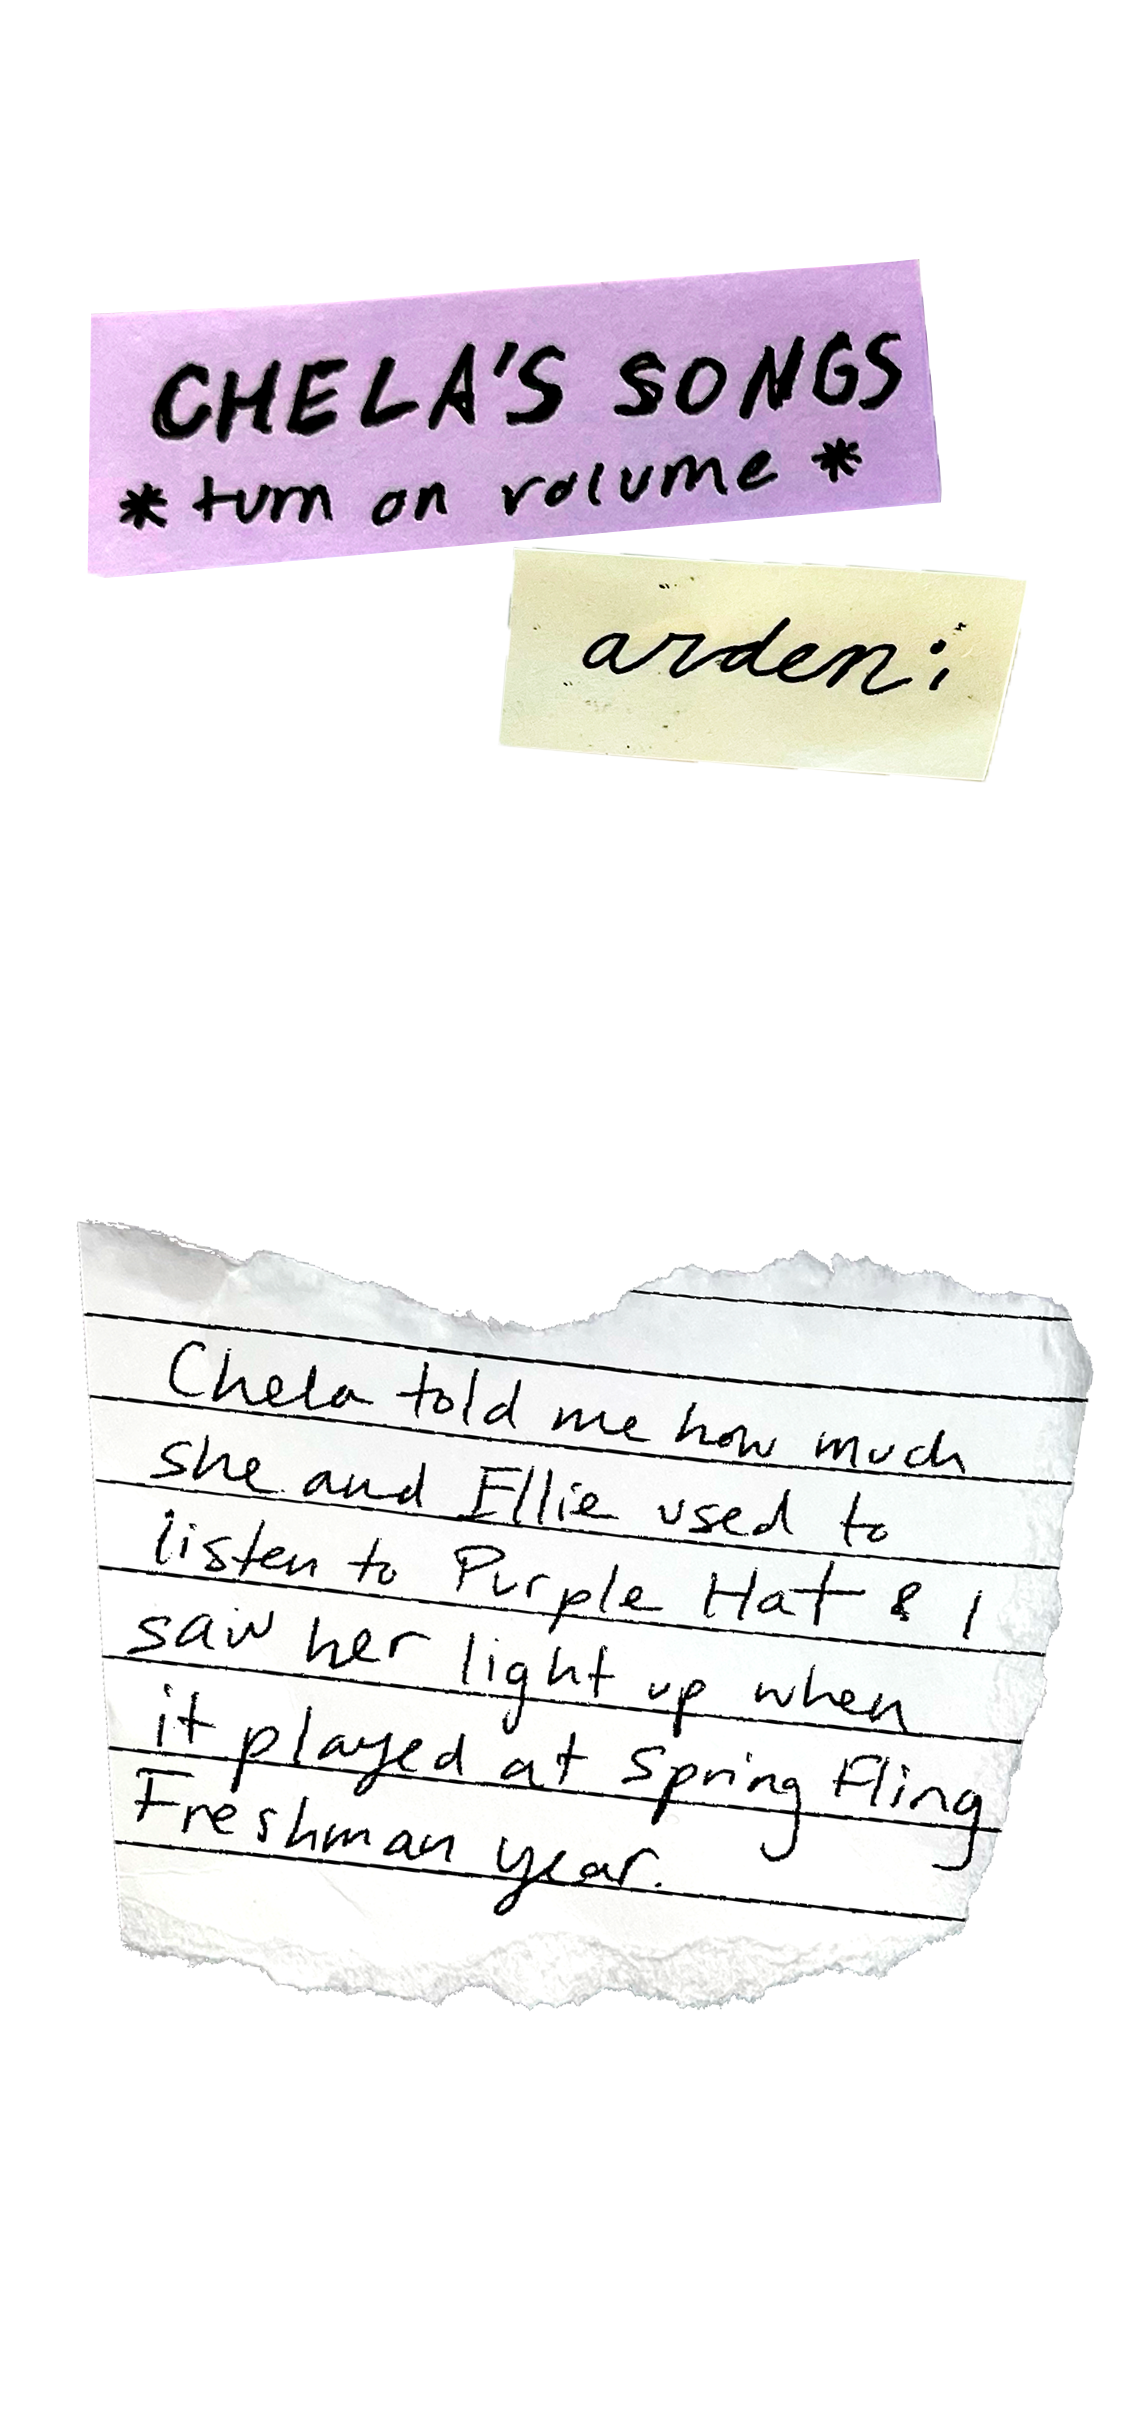 CHELA'S SONGS
* turn on volume *
arden:
Chela told me how much
she and Ellie used to
listen to Purple Hat & I
saw her light up when
it played at Spring Fling
Freshman year.